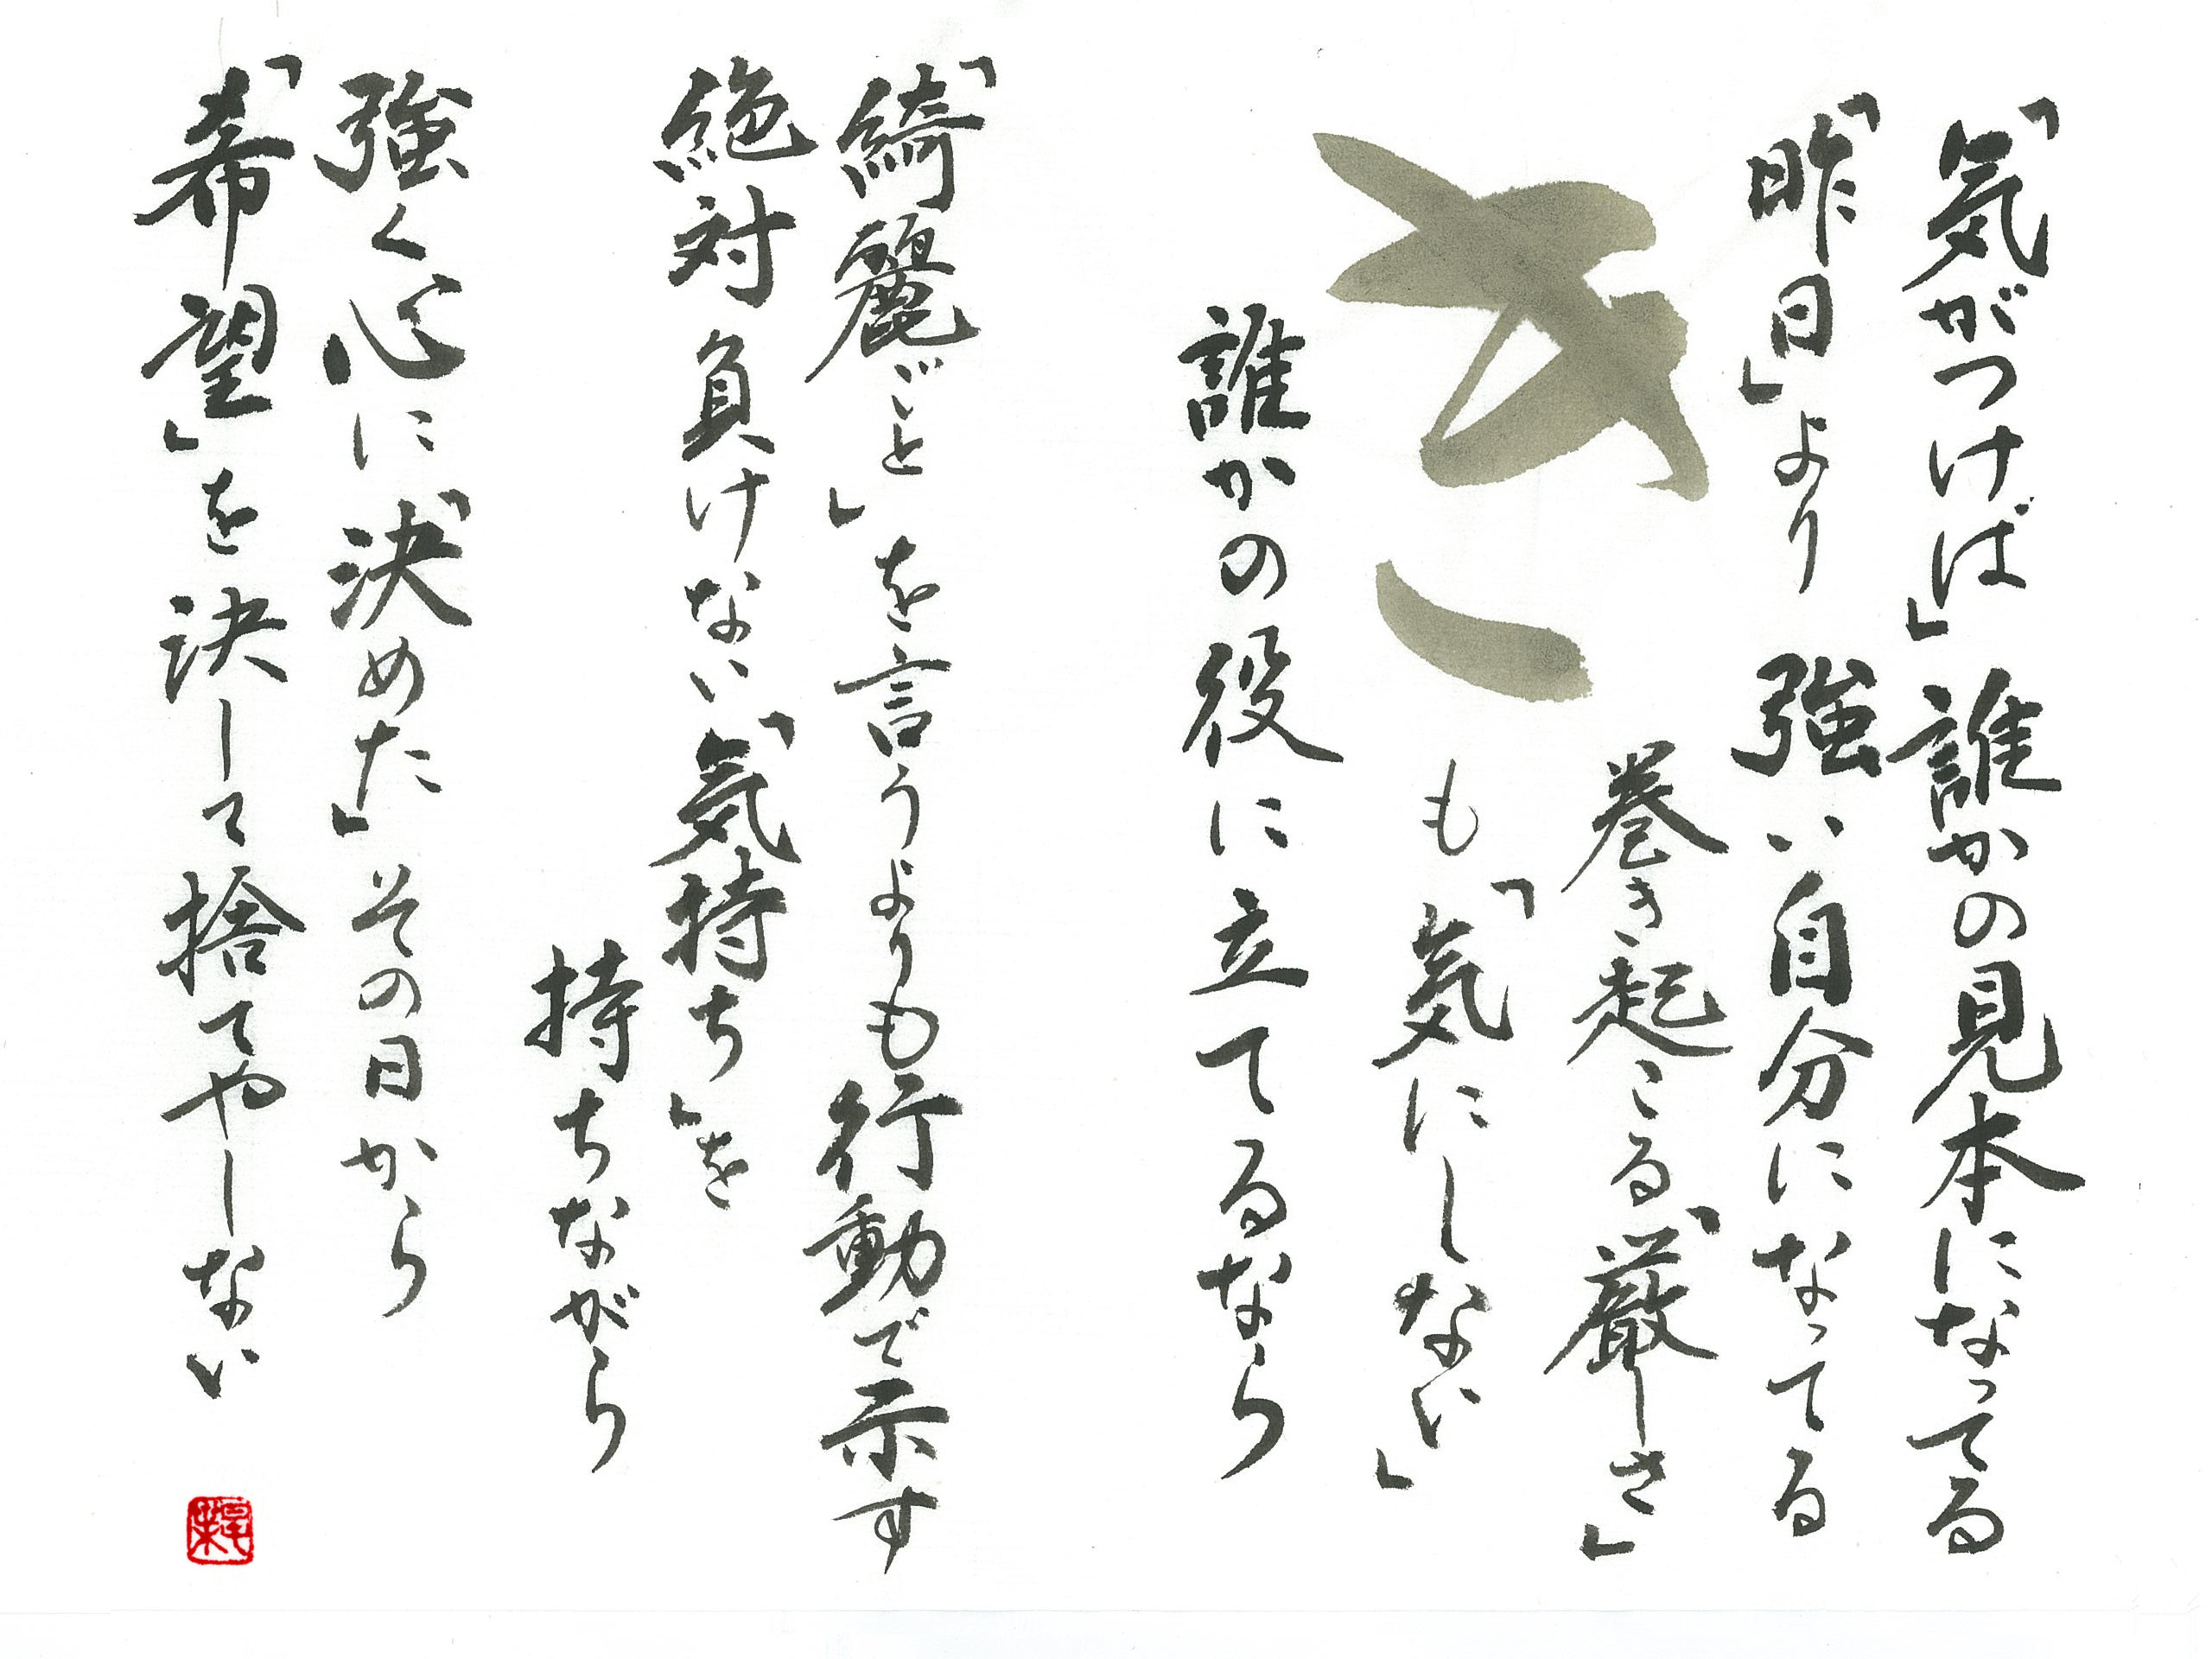 「気がつけば」誰かの見本になってる
「昨日」より 強い自分になってる
巻き起こる「厳しさ」
き
も「気にしない」
誰かの役に立てるなら
「綺麗ごと」を言うよりも行動で示す
絶対負けない「気持ち」を
持ちながら
強く心に「決めた」その日から
「希望」を決して捨てやしない